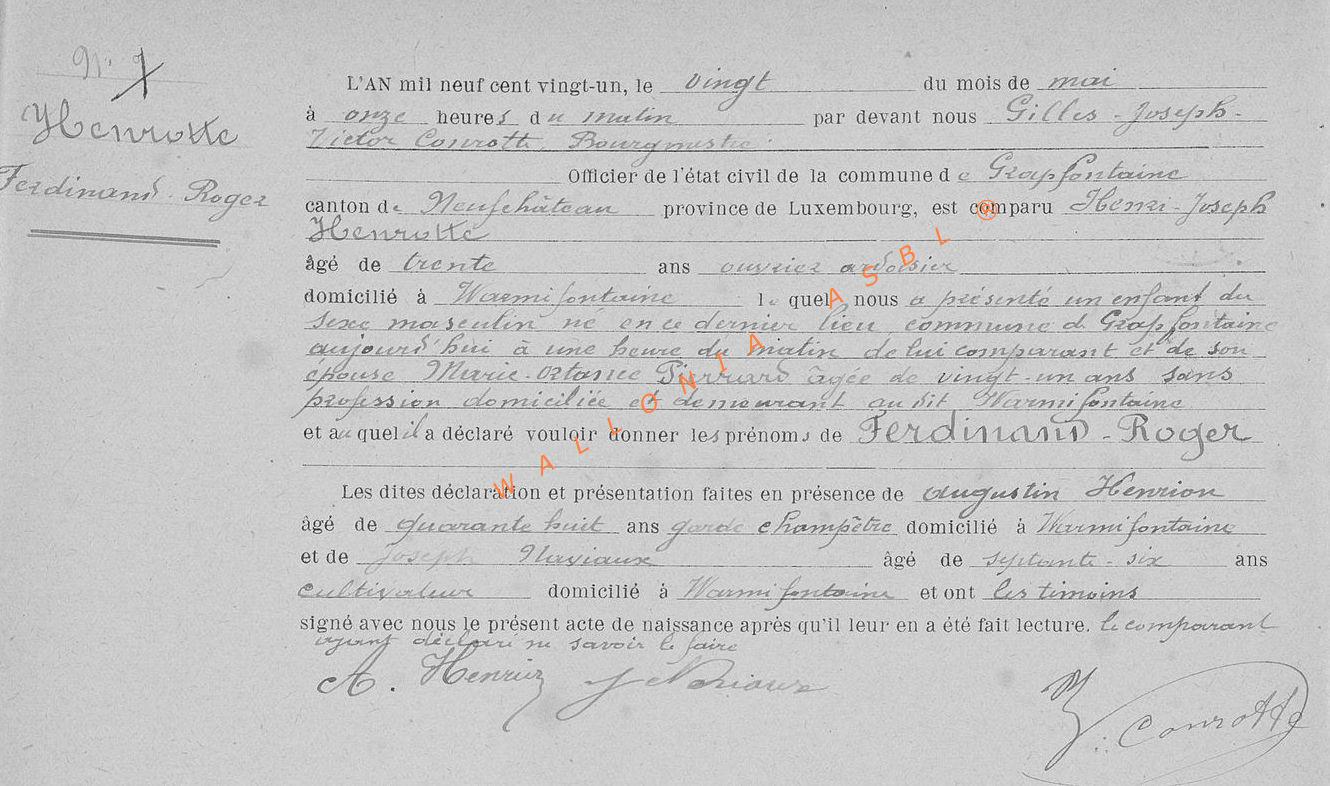 N° 7
Henrotte
Ferdinand-Roger
L'AN mil neuf cent vingt-un, le vingt du mois de mai
à onze heures du matin par devant nous Gilles-Joseph-
Victor Conrotte, Bourgmestre
Officier de l'état civil de la commune de Grapfontaine
canton de Neufchâteau province de Luxembourg, est comparu Henri-Joseph
Henrotte
âgé de trente ans ouvrier ardoisier
domicilié à Warmifontaine lequel nous a présenté un enfant du
sexe masculin né en ce dernier lieu, commune de Grapfontaine
aujourd'hui à une heure du matin de lui comparant et de son
épouse Marie-Ortance Pierrard âgée de vingt-un ans sans
profession domiciliée et demeurant au dit Warmifontaine
et auquel il a déclaré vouloir donner les prénoms de Ferdinand-Roger
Les dites déclaration et présentation faites en présence de Augustin Henrion
âgé de quarante huit ans garde champêtre domicilié à Warmifontaine
et de Joseph Naviaux âgé de septante-six ans
cultivateur domicilié à Warmifontaine et ont les témoins
signé avec nous le présent acte de naissance après qu'il leur en a été fait lecture. le comparant
ayant déclaré ne savoir le faire
A. Henrion J Naviaux
V. Conrotte
WALLONIA ASBL ®